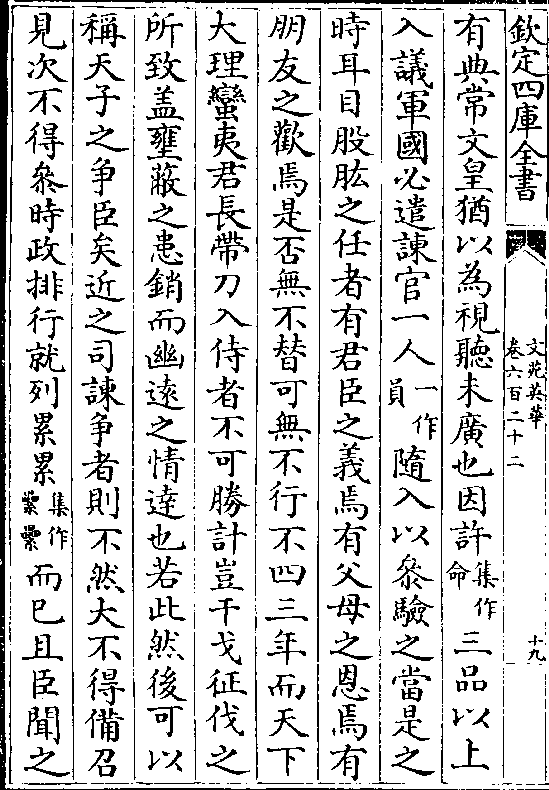 欽定四庫全書
文苑英華
卷六百二十二
十九
有典常文皇猶以為視聽未廣也因許集作命三品以上
入議軍國必遣諫官一人一作員隨入以叅驗之當是之
時耳目股肱之任者有君臣之義焉有父母之恩焉有
朋友之歡焉是否無不替可無不行不四三年而天下
大理蠻夷君長帶刀入侍者不可勝計豈干戈征伐之
所致盖壅蔽之患銷而幽遠之情達也若此然後可以
稱天子之争臣矣近之司諫争者則不然大不得備召
見次不得叅時政排行就列累累集作纍纍而已且臣聞之